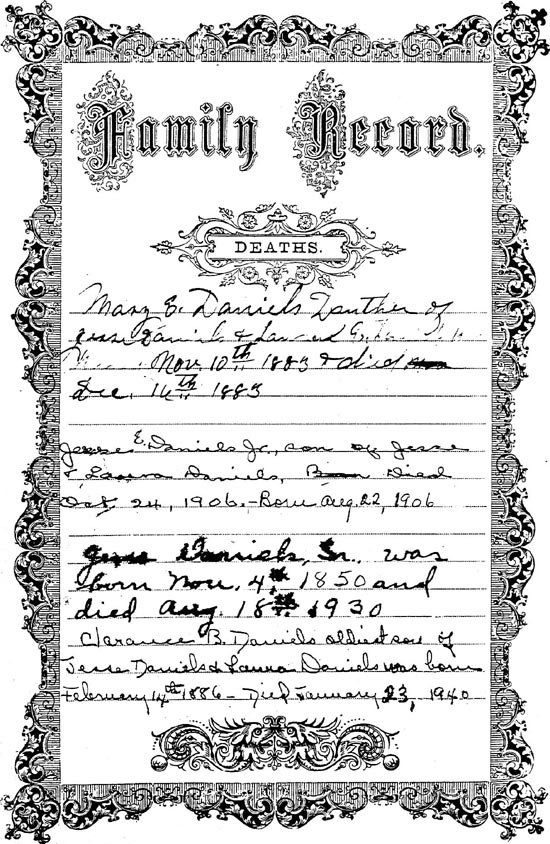 Family Record.
DEATHS.
Mary E. Daniels Douther of
Jesse Daniels & Laura E.
Nov. 10th 1883 & died
Dec. 16th 1883
Jesse E. Daniels Jr., son of Jesse
& Laura Daniels, Died
Oct. 24, 1906.-Born Aug. 22, 1906
Daniels, Sr. was
born Nov. 4th 1850 and
died Aug. 18th 1930
Clarance B. Daniels oldest son of
Jesse Daniels & Laura Daniels was born
February 14th 1886- Died January 23, 1940